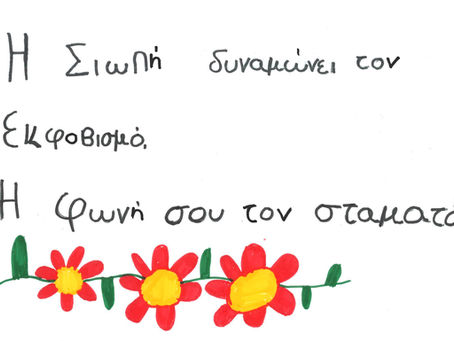 Η Σιωπή δυναμώνει τον
Εκφοβισμό.
Η φωνή σου τον σταματά